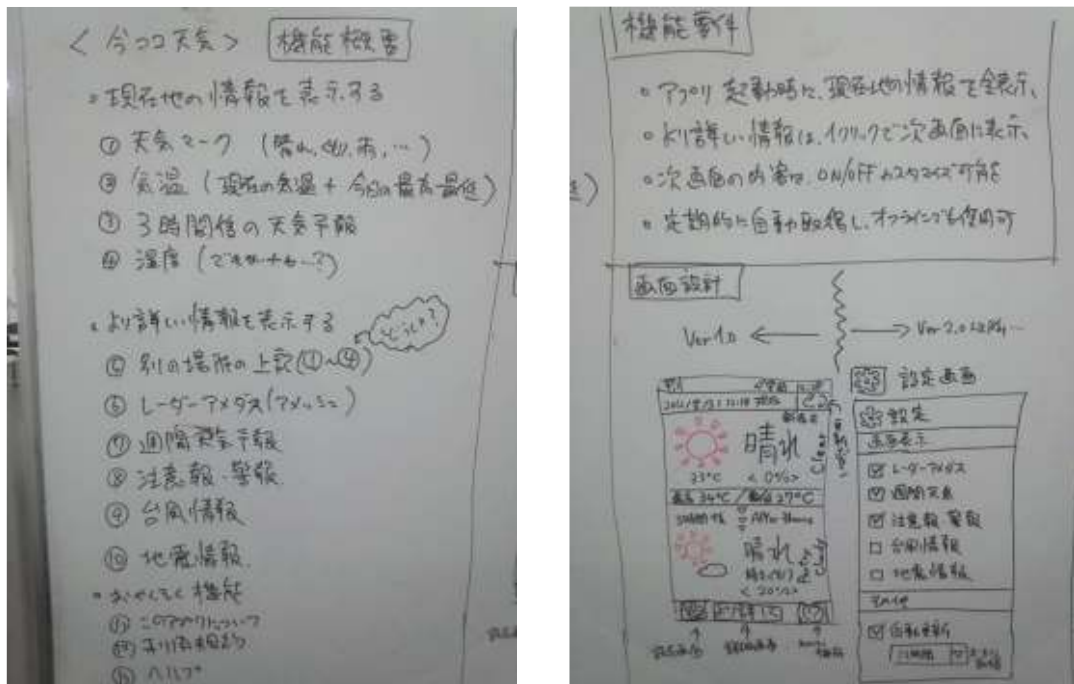 <今ココ天気> 機能概要
。現在地の情報を表示する
① 天気マーク (晴れ, くもり, 雨, …)
② 気温 (現在の気温 + 今日の最高・最低)
③ 3時間倍の天気予報
④ 湿度 (できれば…?)
。より詳しい情報を表示する
⑤ 別の場所の上記(①~④)
⑥ レーダーアメダス(アメッシュ)
⑦ 週間天気予報
⑧ 注意報・警報
⑨ 台風情報
⑩ 地震情報
。おやくそく機能
このアプリについて
ヘルプ
機能要件
。アプリ起動時に、現在地の情報を全表示、
。より詳しい情報は、1クリックで次画面に表示、
。次画面の内容は、ON/OFFカスタマイズ可能
。定期的に自動取得し、オフラインでも使用可
画面設計
Ver1.0 ← → Ver2.0以降…
設定画面
晴れ
33°C <0%>
最高34°C / 最低27°C
After 3hours
晴れ
<20%>
設定
画面表示
☑ レーダーアメダス
☑ 週間天気
☑ 注意報・警報
□ 台風情報
□ 地震情報
その他
☑ 自動更新